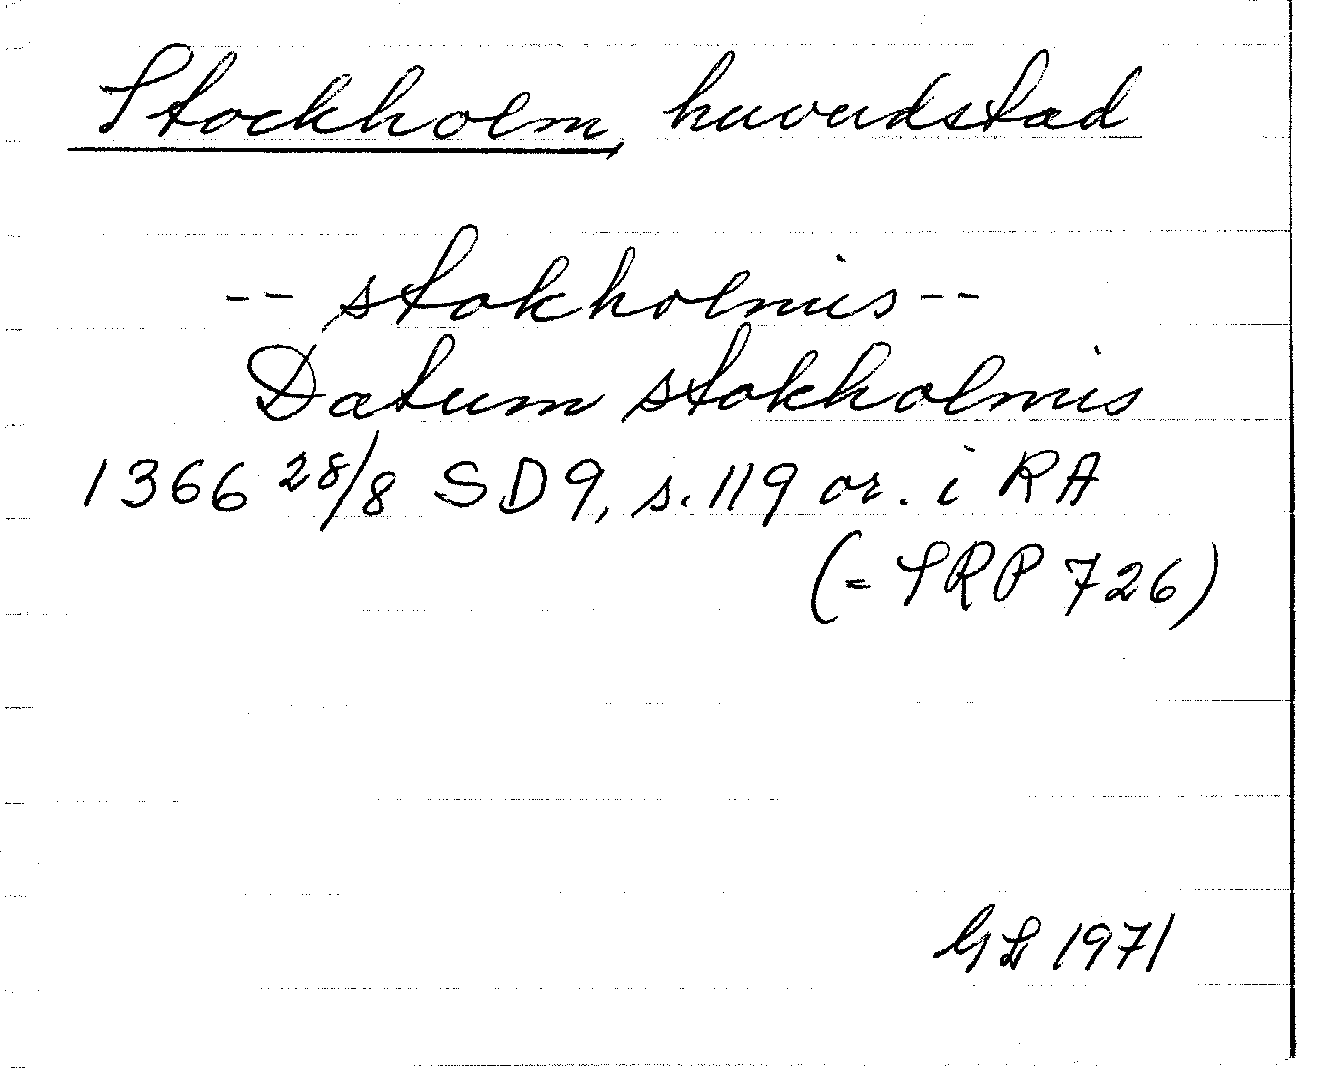 Stockholm, huvudstad
-- stokholmis --
Datum stokholmis
1366 28/8 SD9, s. 119 or. i RA
(= SRP 726)
GL 1971